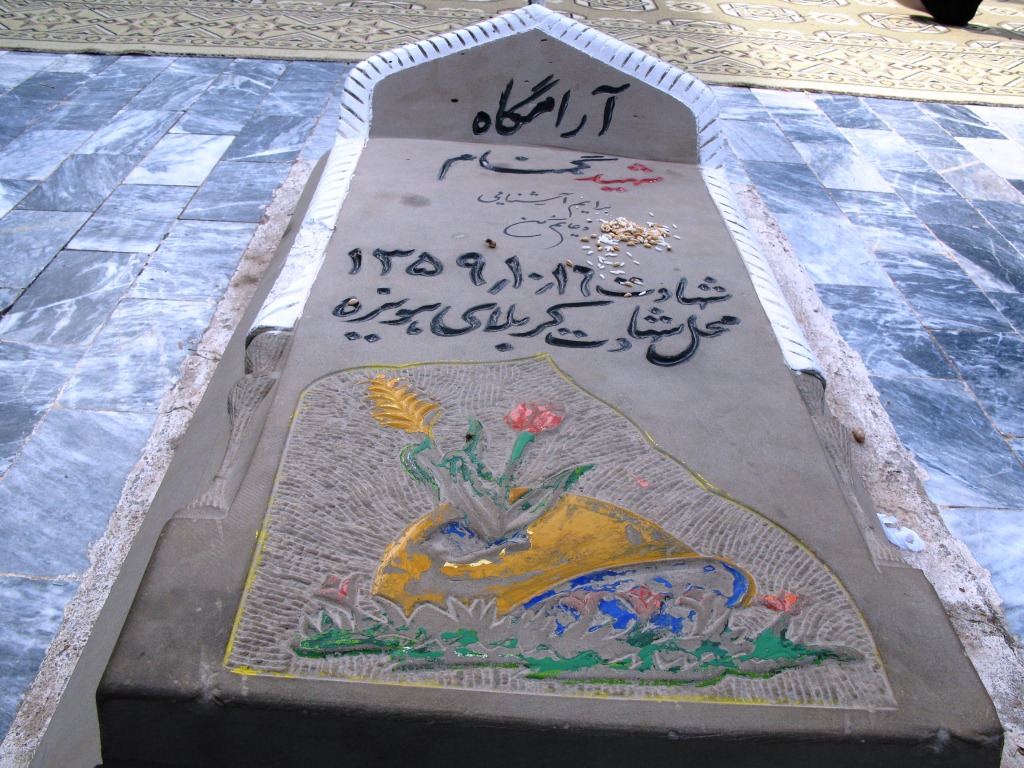 آرامگاه
شهید گمنام
برایم آشنایی
دعایم کن
شهادت ۱۳۵۹٫۱۰٫۱۶
محل شهادت کربلای هویزه